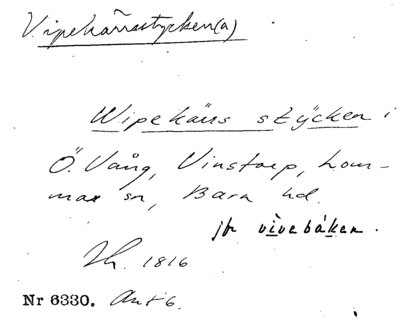 Vipekärrsstycken(a)
Wipekärs stÿcken i
Ö. Vång, Vinstorp, Lom-
max sn, Bara hd.
jfr vìvebáken.
1816
Nr 6330. Ant 6.